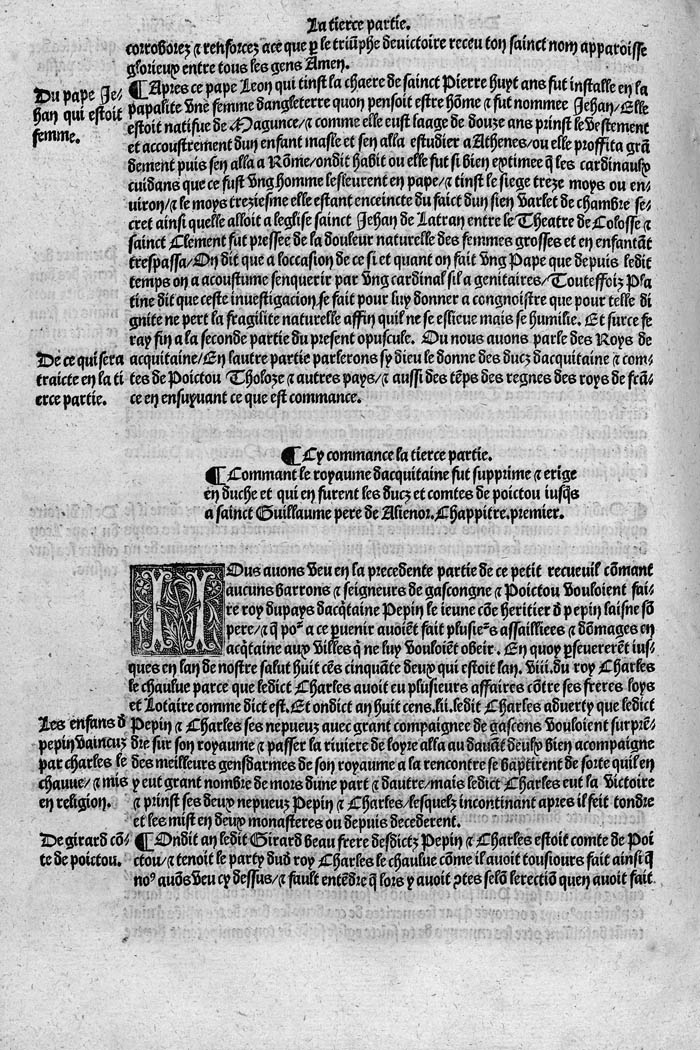 La tierce partie.
corroborez ⁊ renforcez ace que ꝑ le triũphe devictoire receu ton sainct nom apparoisse
glorieux entre tous les gens Amen.
Du pape Je-
han qui estoit
femme.
¶ Apres ce pape Leon qui tinst la chaere de sainct Pierre huyt ans fut installe en la
papalite vne femme dangleterre quon pensoit estre hõme ⁊ fut nommee Jehan/ Elle
estoit natifue de Magunce/ ⁊ comme elle eust laage de douze ans prinst le vestement
et accoustrement dun enfant masle et sen alla estudier a Athenes/ ou elle proffita grã
dement puis sen alla a Rõme/ ondit habit ou elle fut si bien extimee q̃ les cardinaulx
cuidans que ce fust vng homme lesleurent en pape/ ⁊ tinst le siege treze moys ou en-
uiron/ ⁊ le moys treziesme elle estant enceincte du faict dun sien varlet de chambre se-
cret ainsi quelle alloit a leglise sainct Jehan de Latran entre le Theatre de Colosse ⁊
sainct Clement fut pressee de la douleur naturelle des femmes grosses et en enfantãt
trespassa/ On dit que a loccasion de ce si et quant on fait vng Pape que depuis ledit
temps on a acoustume senquerir par vng cardinal sil a genitaires/ Touteffoiz Pla
tine dit que ceste inuestigacion se fait pour luy donner a congnoistre que pour telle di
gnite ne pert la fragilite naturelle affin quil ne se eslieue mais se humilie. Et surce fe
ray fin a la seconde partie du present opuscule. Ou nous avons parle des Roys de
De ce qui sera
traicte en la ti
erce partie.
acquitaine/ En lautre partie parlerons sy dieu le donne des ducz dacquitaine ⁊ com-
tes de Poictou Tholoze ⁊ autres pays/ ⁊ aussi des tẽps des regnes des roys de frã-
ce en ensuyuant ce que est commance.
¶ Cy commance la tierce partie.
¶ Commant le royaume dacquitaine fut supprime ⁊ erige
en duche et qui en furent les ducz et comtes de poictou iusq̃s
a sainct Guillaume pere de Alienor. Chappitre. premier.
NOus auons veu en la precedente partie de ce petit recueuil cõmant
aucuns barrons ⁊ seigneurs de gascongne ⁊ Poictou vouloient fai-
re roy dupays dacq̃taine Pepin le ieune cõe heritier d̃ pepin laisne sõ
pere/ ⁊ q̃ poᷣ a ce ꝑuenir avoiẽt fait plusieᷣs assailliees ⁊ dõmages en
acq̃taine aux villes q̃ ne luy vouloiẽt obeir. En quoy ꝑseuererẽt ius-
ques en lan de nostre salut huit cẽs cinquãte deux qui estoit lan. viii. du roy Charles
le chaulue parce que ledict Charles auoit eu plusieurs affaires cõtre ses freres loys
et Lotaire comme dict est. Et ondict an huit cens.lii. ledit Charles aduerty que ledict
Les enfans d̃
pepin vaincuz
par charles le
chauue/ ⁊ mis
en religion.
Pepin ⁊ Charles ses nepueuz avec grant compaignee de gascons vouloient surprẽ-
dre sur son royaume ⁊ passer la riuiere de loyre alla au dauãt deulx bien acompaigne
des meilleurs gensdarmes de son royaume a la rencontre se baptirent de sorte quil en
y eut grant nombre de mors dune part ⁊ dautre/ mais ledict Charles eut la victoire
⁊ prinst ses deux nepueuz Pepin ⁊ Charles/ lesquelz incontinant apres il feit tondre
et les mist en deux monasteres ou depuis decederent.
De girard cõ-
te de poictou.
¶ Ondit an ledit Girard beau frere desdictz Pepin ⁊ Charles estoit comte de Poi
ctou/ ⁊ tenoit le party dud roy Charles le chaulue cõme il auoit tousiours fait ainsi q̃
noꝰ auõs veu cy dessus/ ⁊ fault entẽdre q̃ lors y auoit ꝯtes selõ lerectiõ quen auoit fait